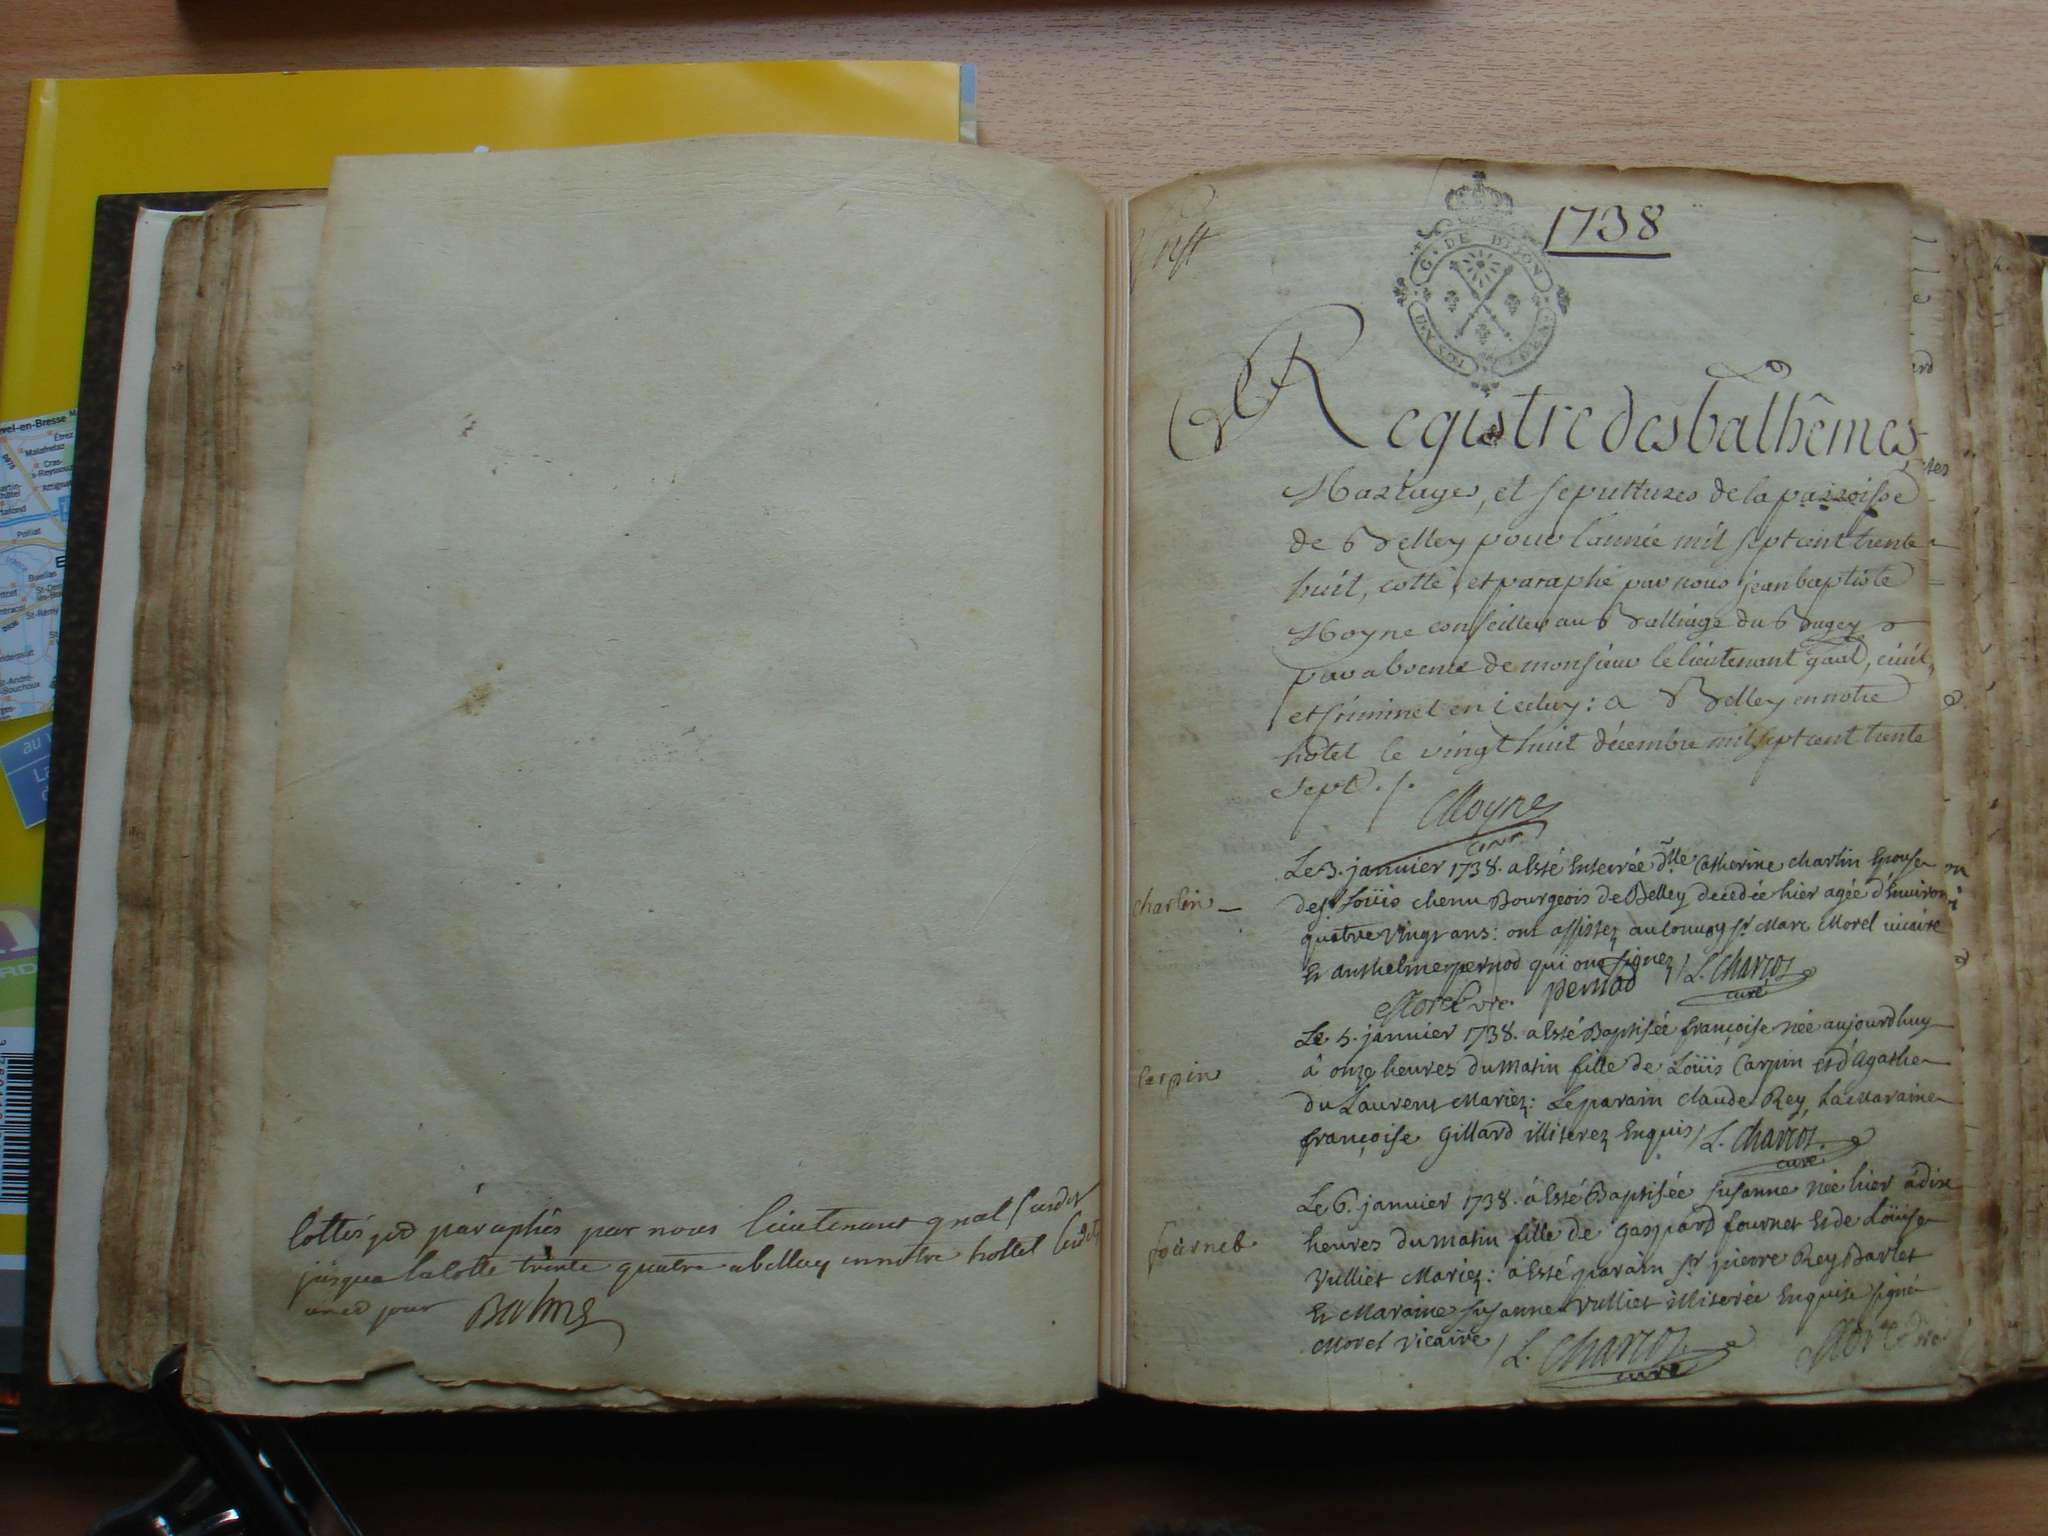 vel-en-Bresse
Étrez
Malafretaz
Cras-
s-Reyssouze
Attignat
Polliat
Buellas
St-Rémy
St-André-
au
cottés et paraphés par nous lieutenant gnal susdt
jusqua la cotte trente quatre a belley en notre hostel
1738
G. DE DIJON
Registre des bathêmes
Mariages, et sepultures de la parroisse
de Belley pour l'année mil sept cent trente
huit, cotté, et paraphé par nous jean baptiste
Moyne conseiller au Balliage du Bugey
par absence de monsieur le lieutenant gnal, civil,
et criminel en iceluy: a Belley en notre
hotel le vingt huit décembre mil sept cent trente
sept.
Moyne
charlin
Le 3. janvier 1738. a Esté Enterrée dlle Catherine charlin Epouse
de sr Loüis chenu Bourgeois de Belley decedée hier agée d'Environ
quatre vingt ans: ont assistez au convoy sr Marc Morel vicaire
Et anthelme pernod qui ont signez / L. Charcot
curé
Morel vre. pernod
carpin
Le 5. janvier 1738. a Esté Baptisée françoise née aujourdhuy
à onze heures du matin fille de Loüis Carpin et d'Agathe
du Laurent Mariez: Le parain Claude Rey, La Maraine
françoise Gillard illiterez Enquis / L. Charcot.
curé.
fournet
Le 6. janvier 1738. à Esté Baptisée susanne née hier à dix
heures du matin fille de Gaspard fournet et de Loüise
Vulliet Mariez: à Esté parain sr pierre Rey Barlet
Et Maraine susanne Vulliet illiterée Enquise signé
Morel Vicaire / L. Charcot. Morel vre.
curé